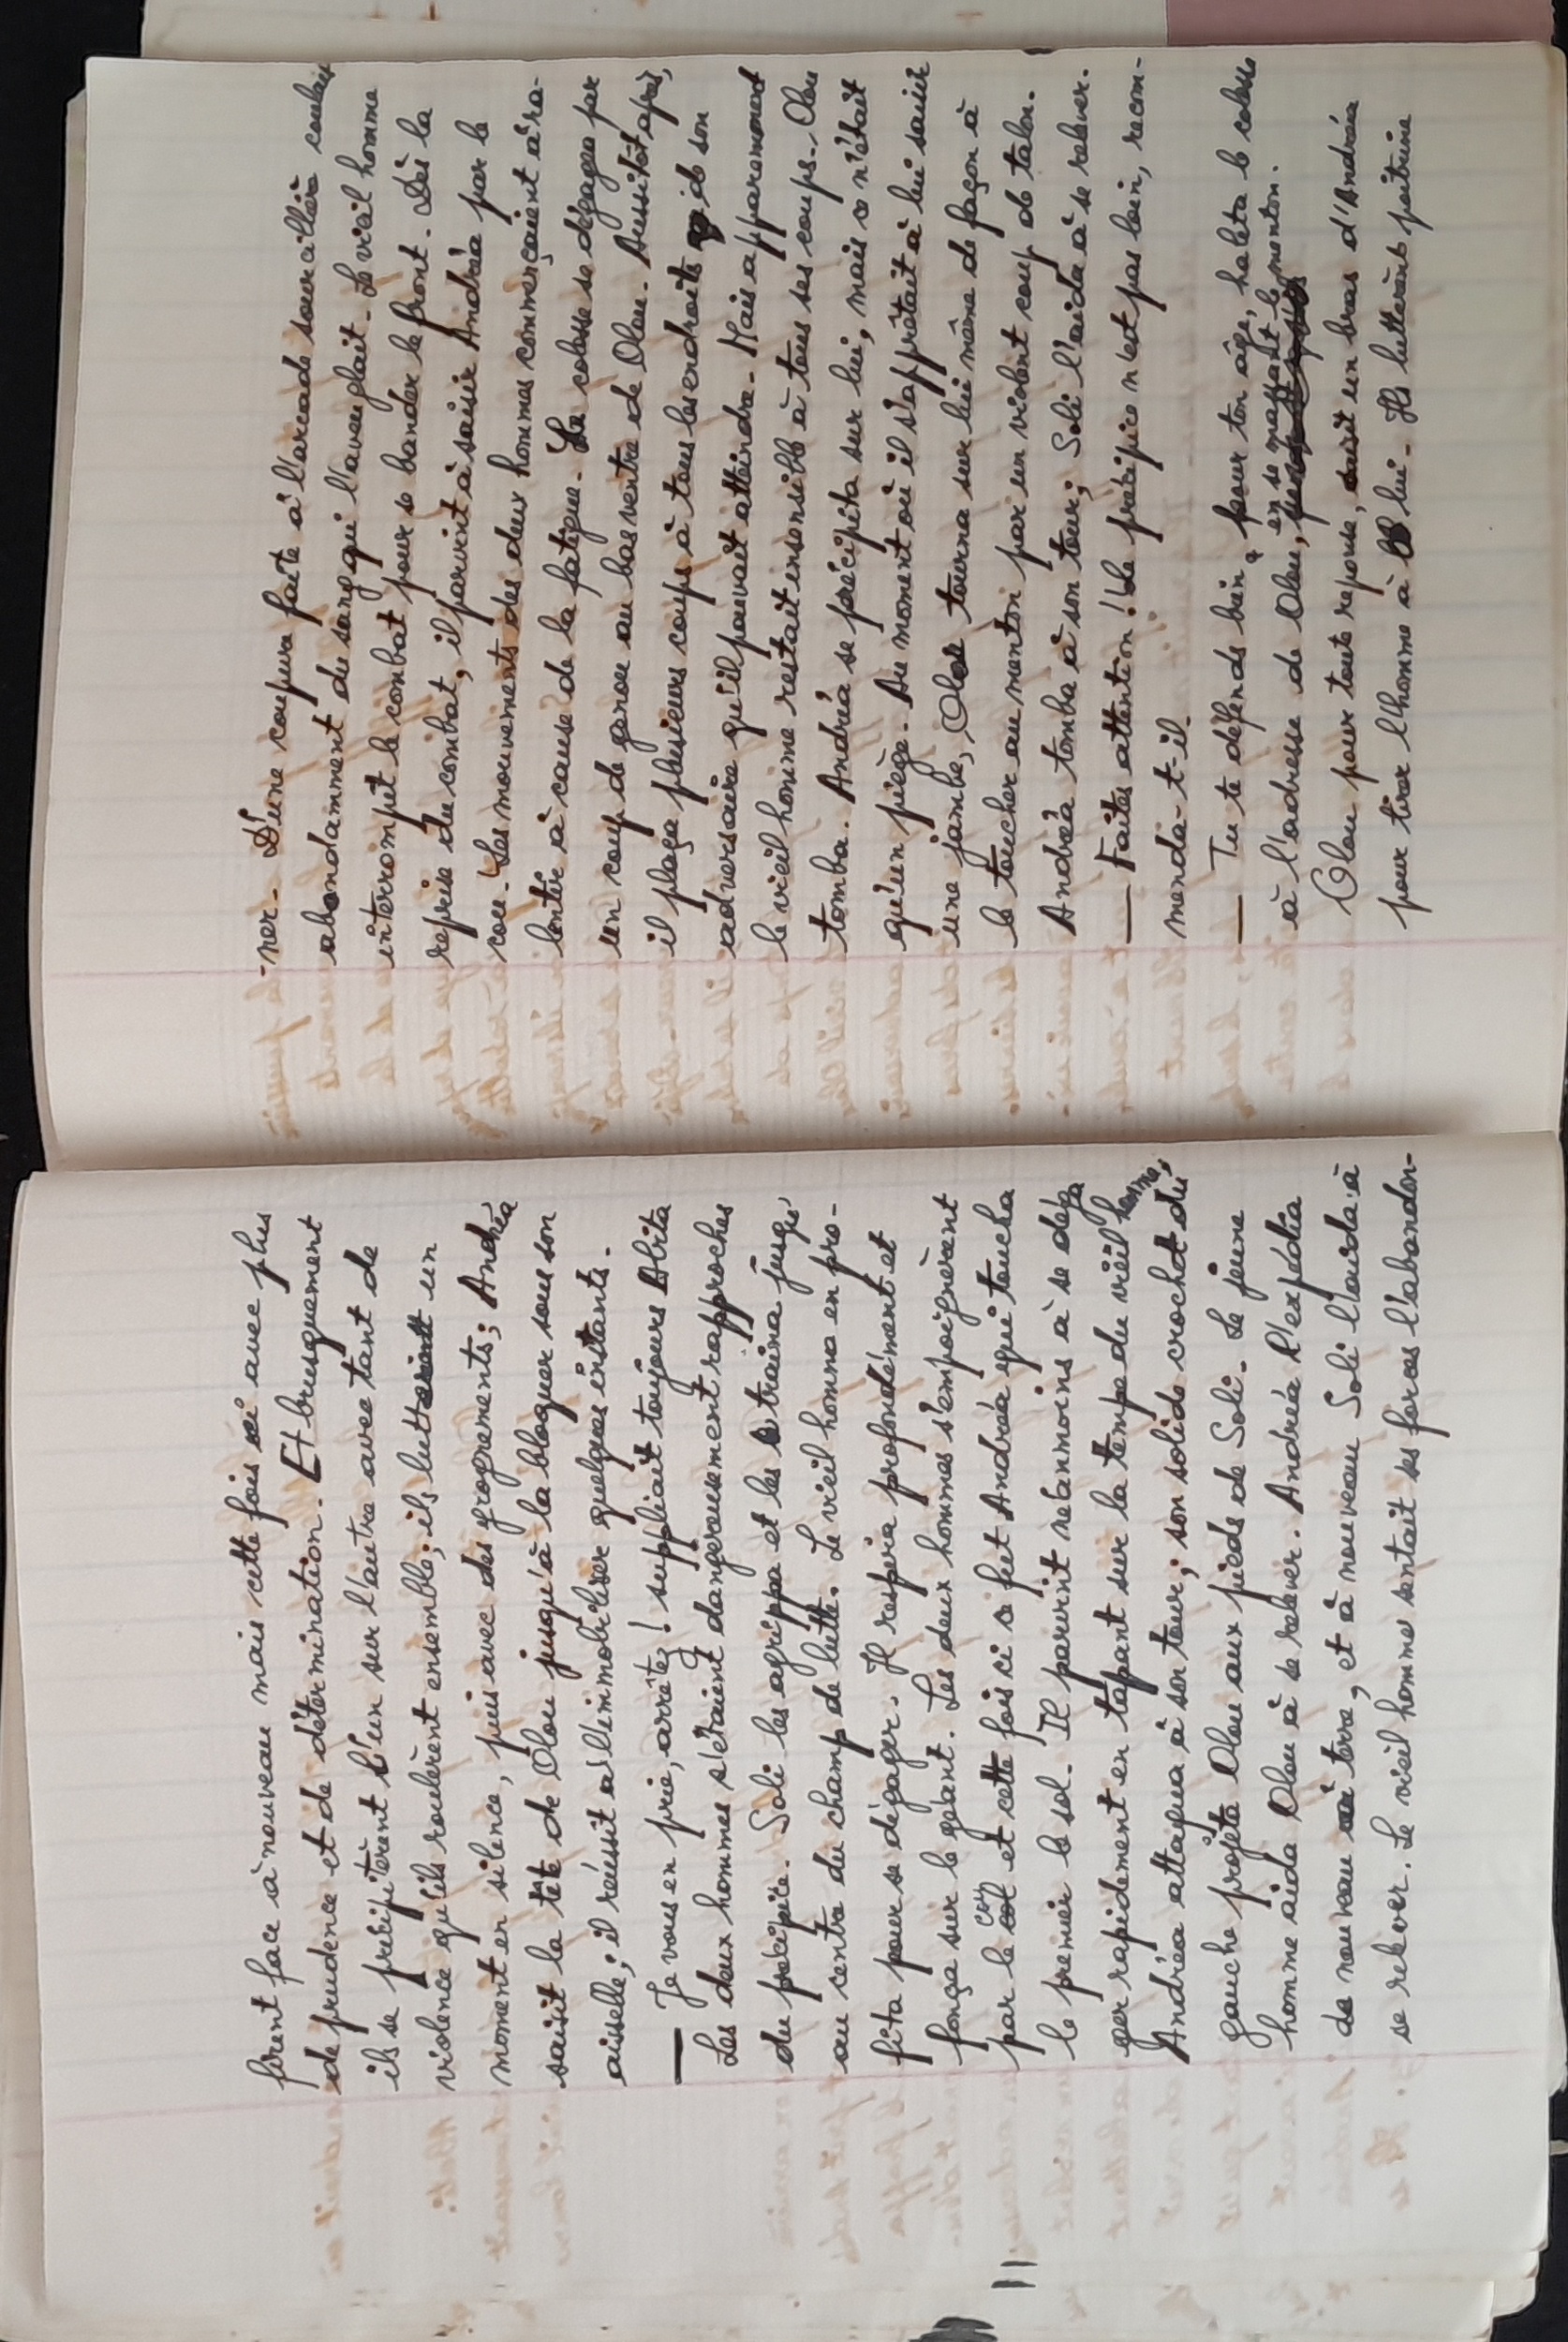 firent face à nouveau mais cette fois ci avec plus
de prudence et de détermination. Et brusquement
ils se précipitèrent l'un sur l'autre avec tant de
violence qu'ils roulèrent ensemble; ils luttèrent un
moment en silence, puis avec des grognements; Andréa
saisit la tête de Olou jusqu'à la bloquer sous son
aisselle; il réussit à l'immobiliser quelques instants.
— Je vous en prie, arrêtez! suppliait toujours Abita
Les deux hommes s'étaient dangereusement rapprochés
du précipice. Soli les agrippa et les traina jusqu'
au centre du champ de lutte. Le vieil homme en pro-
fita pour se dégager. Il respira profondément et
fonça sur le géant. Les deux hommes s'empoignèrent
par le cou et cette fois ci ce fut Andréa qui toucha
le premier le sol. Il parvint néanmoins à se déga
ger rapidement en tapant sur la tempe du vieil homme;
Andréa attaqua à son tour; son solide crochet du
gauche projeta Olou aux pieds de Soli. Le jeune
homme aida Olou à se relever. Andréa l'expédia
de nouveau à terre, et à nouveau Soli l'aida à
se relever. Le vieil homme sentait ses forces l'abandon-
11
-ner. D'une coupure faite à l'arcade sourcillère coulait
abondamment du sang qui l'aveuglait. Le vieil homme
interrompit le combat pour se bander le front. Dès la
reprise du combat, il parvint à saisir Andréa par le
cou. Les mouvements des deux hommes commençaient à ra-
lentir à cause de la fatigue. Le colosse se dégagea par
un coup de genou au bas ventre de Olou. Aussitôt après,
il plaça plusieurs coups à tous les endroits de son
adversaire qu'il pouvait atteindre. Mais apparemment
le vieil homme restait insensible à tous ses coups. Olou
tomba. Andréa se précipita sur lui, mais ce n'était
qu'un piège. Au moment où il s'apprêtait à lui saisir
une jambe, Olou tourna sur lui même de façon à
le toucher au menton par un violent coup de talon.
Andréa tomba à son tour; Soli l'aida à se relever.
— Faites attention! Le précipice n'est pas loin, recom-
manda-t-il.
— Tu te défends bien pour ton âge, haleta le colosse
à l'adresse de Olou, en se massant le menton.
Olou pour toute reponse, saisit un bras d'Andréa
pour tirer l'homme à lui. Ils luttèrent poitrine